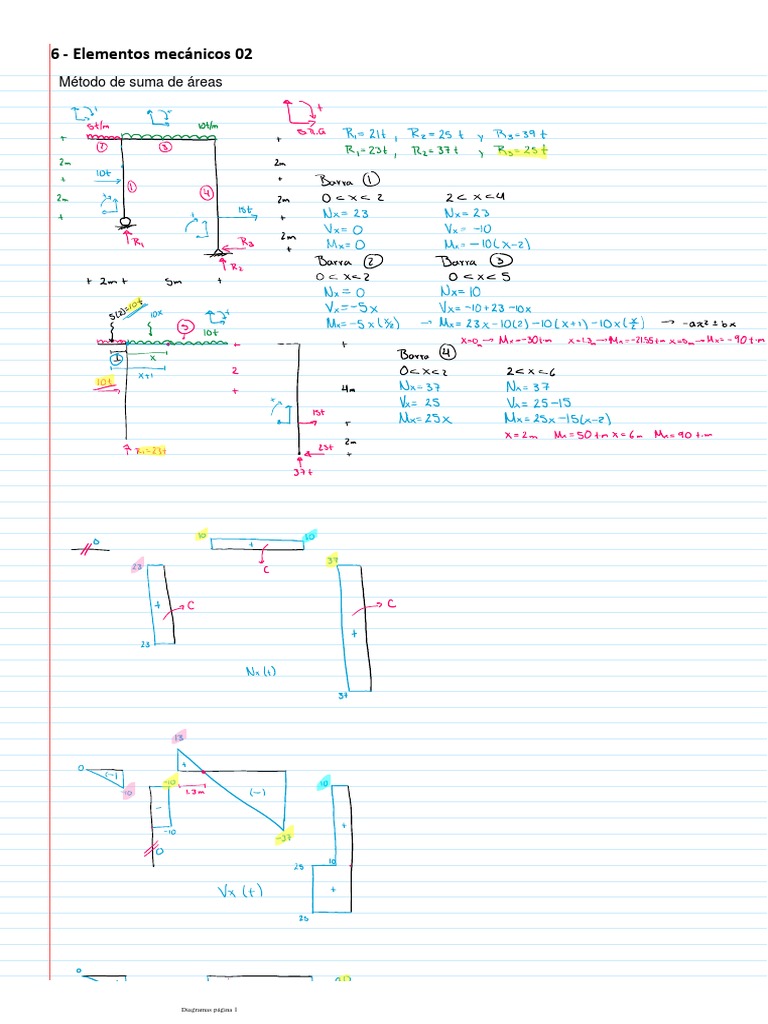 6 - Elementos mecánicos 02
Método de suma de áreas
5t/m 10t/m
② ③
2m
10t
①
④
2m
15t
R₁
R₃
R₂
2m 5m
2m
2m
2m
S.R.G
R₁=21t, R₂=25t y R₃=39t
R₁=23t, R₂=37t, y R₃=25t
Barra ①
0<x<2 2<x<4
Nx=23 Nx=23
Vx=0 Vx=-10
Mx=0 Mx=-10(x-2)
Barra ② Barra ③
0<x<2 0<x<5
Nx=0 Nx=10
Vx=-5x Vx=-10+23-10x
Mx=-5x(x/2) → Mx=23x-10(2)-10(x+1)-10x(x/2) → -ax²±bx
x=0m→Mx=-30t·m x=1.3m→Mx=-21.55t·m x=5m→Mx=-90t·m
Barra ④
0<x<2 2<x<6
Nx=37 Nx=37
Vx=25 Vx=25-15
Mx=25x Mx=25x-15(x-2)
x=2m Mx=50t·m x=6m Mx=90t·m
5(2)=10t
10x
③
10t
1
x
x+1
2
10t
R₁=23t
4m
15t
2m
25t
37t
0
10 + 10
C
23
+
C
23
37
C
+
37
Nx(t)
13
0
(-)
-10
+
-10
1.3m
(-)
-
-10
0
-37
10
+
25
10
+
25
Vx(t)
0
Diagramas página 1